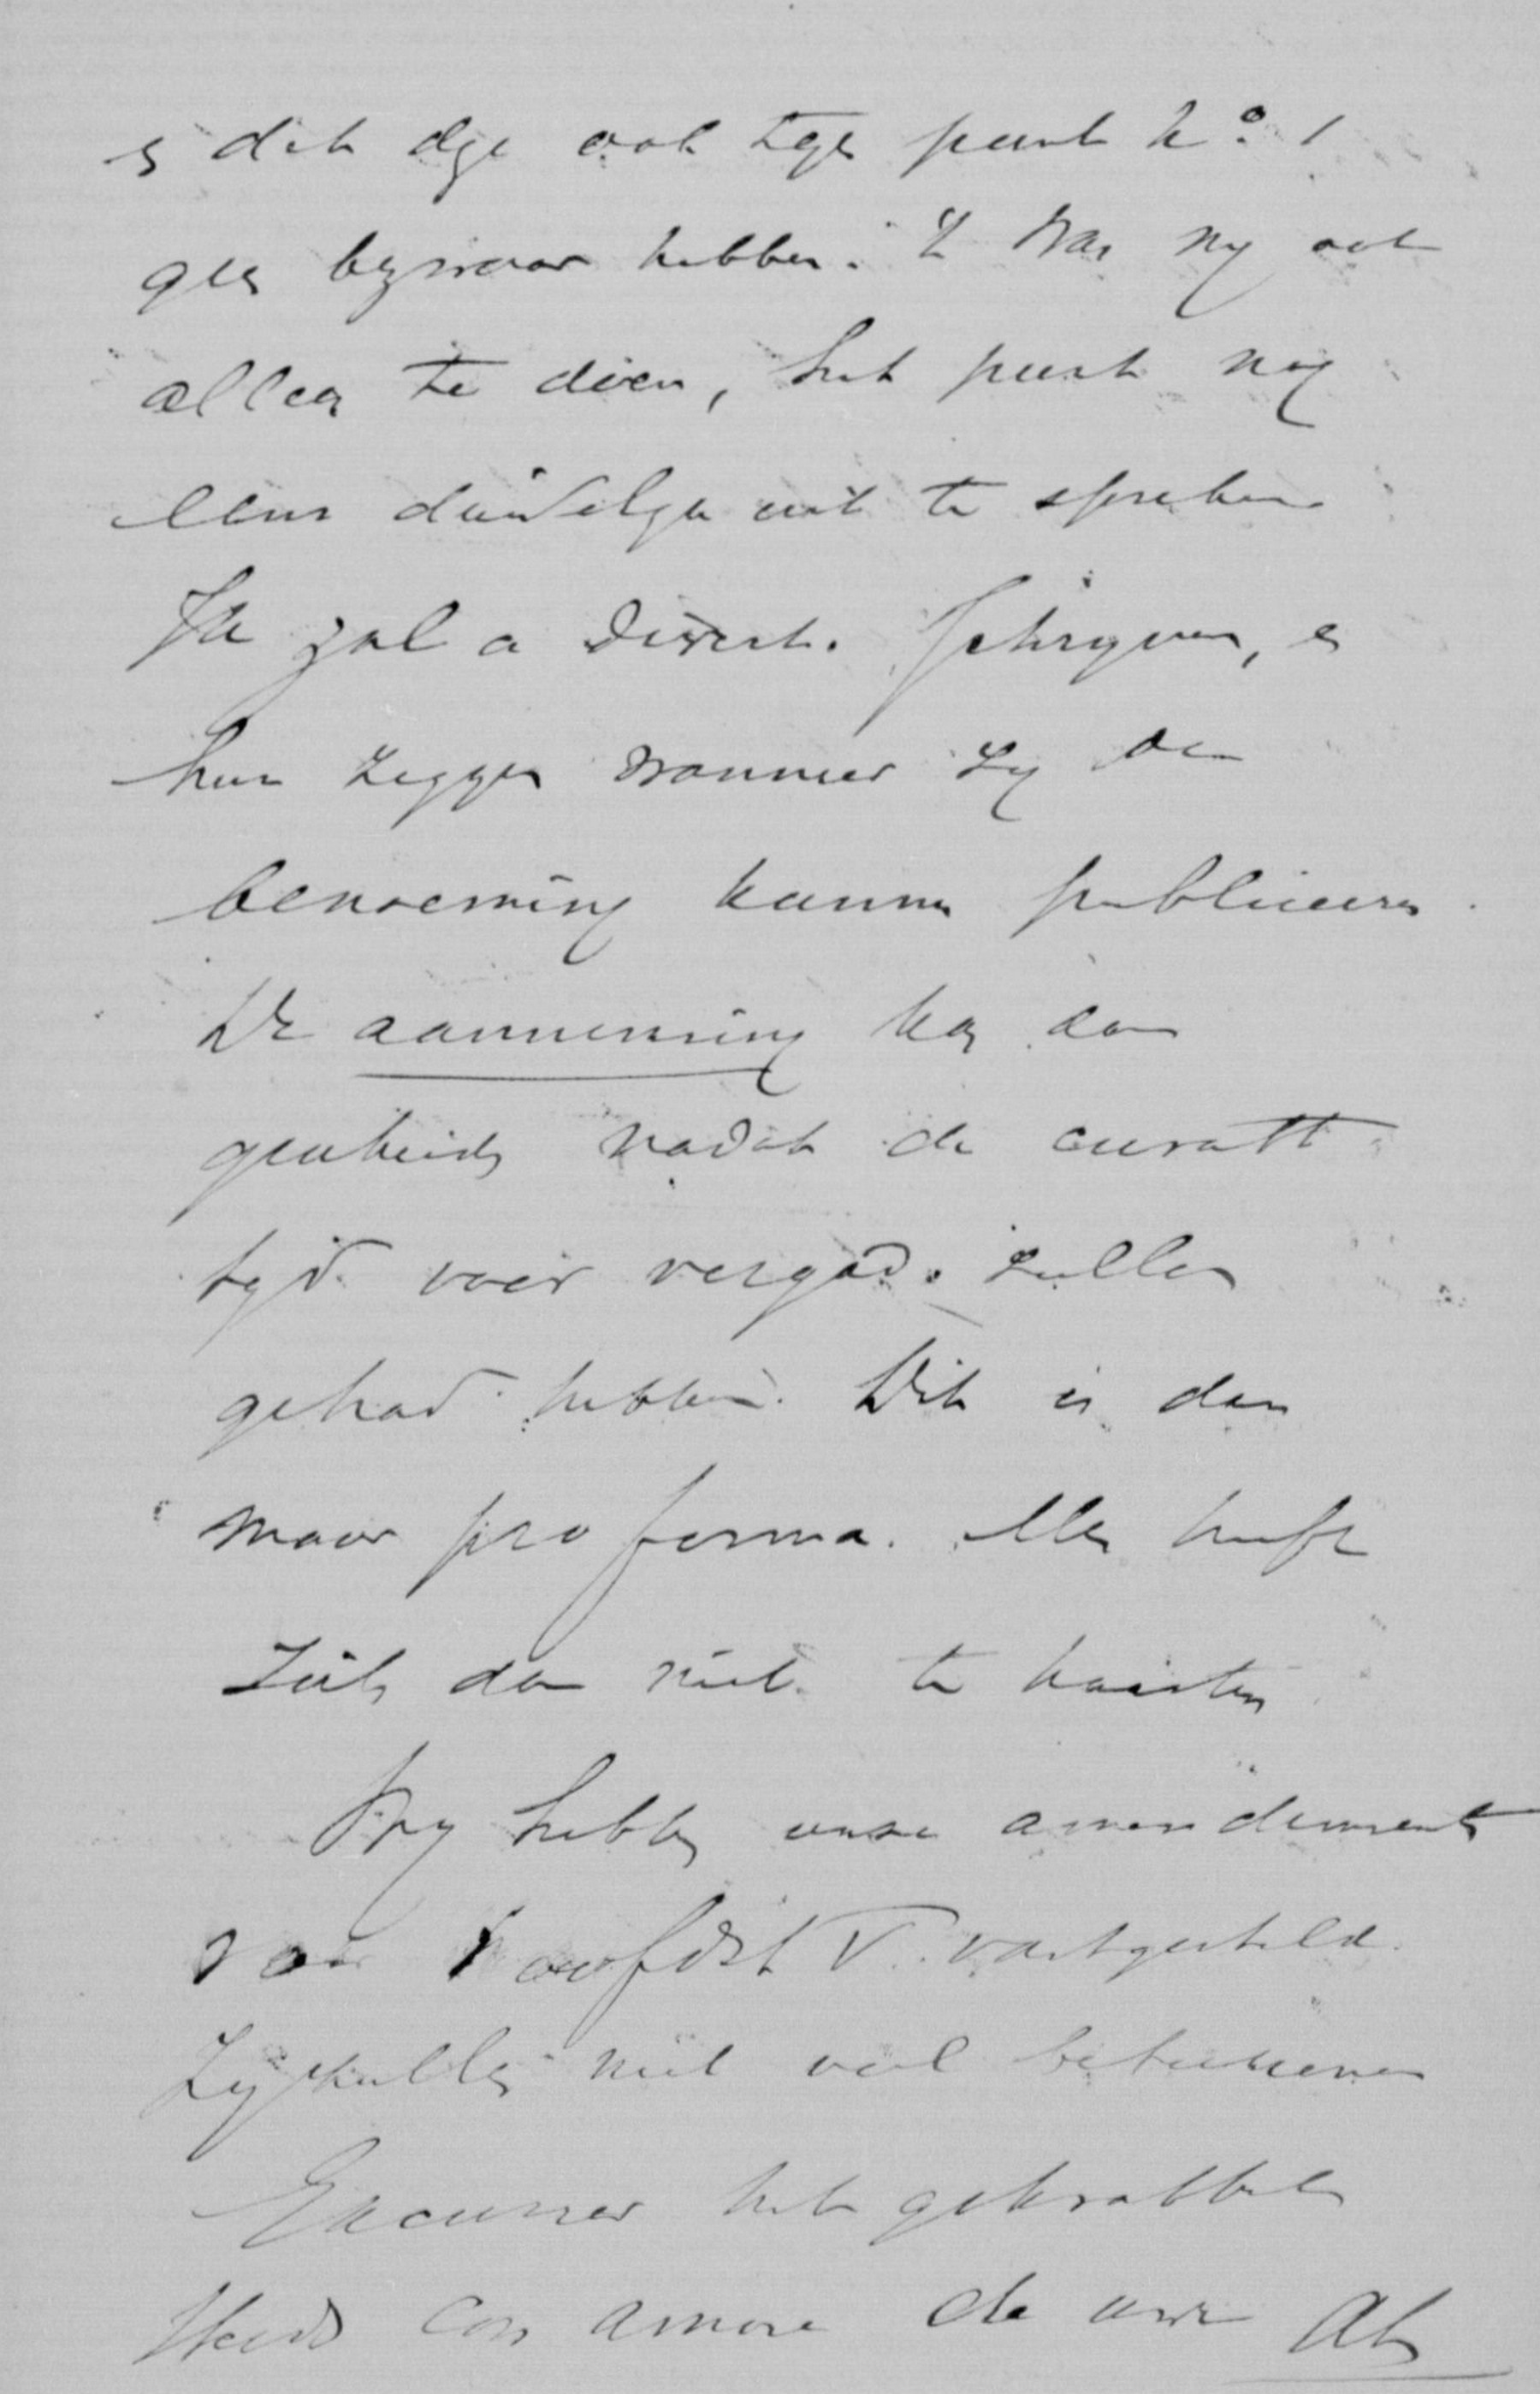 en dat dge ook tegen punt No. 1
geen bezwaar hebben. 't Was mij ook
alleen te doen, het punt nog
eens duidelijk uit te spreken
Ik zal a Direct. schrijven, en
hun zeggen wanneer zij de
benoeming kunnen publiceeren.
De aanneming kan dan
geschieden nadat de curatt
tijd voor vergad. zullen
gehad hebben. Dit is dan
maar pro forma. Men heeft
zich dan niet te haasten
Wij hebben onze amendement
voor hoofdst V. vastgesteld.
Zij zullen niet veel beteekenen
Excuseer het gekrabbel
Steeds con amore de uwe